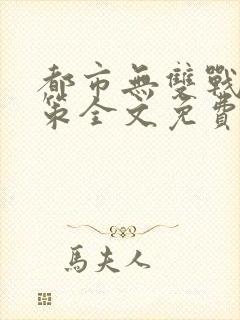 都市無雙戰
策全文免費
馬夫人